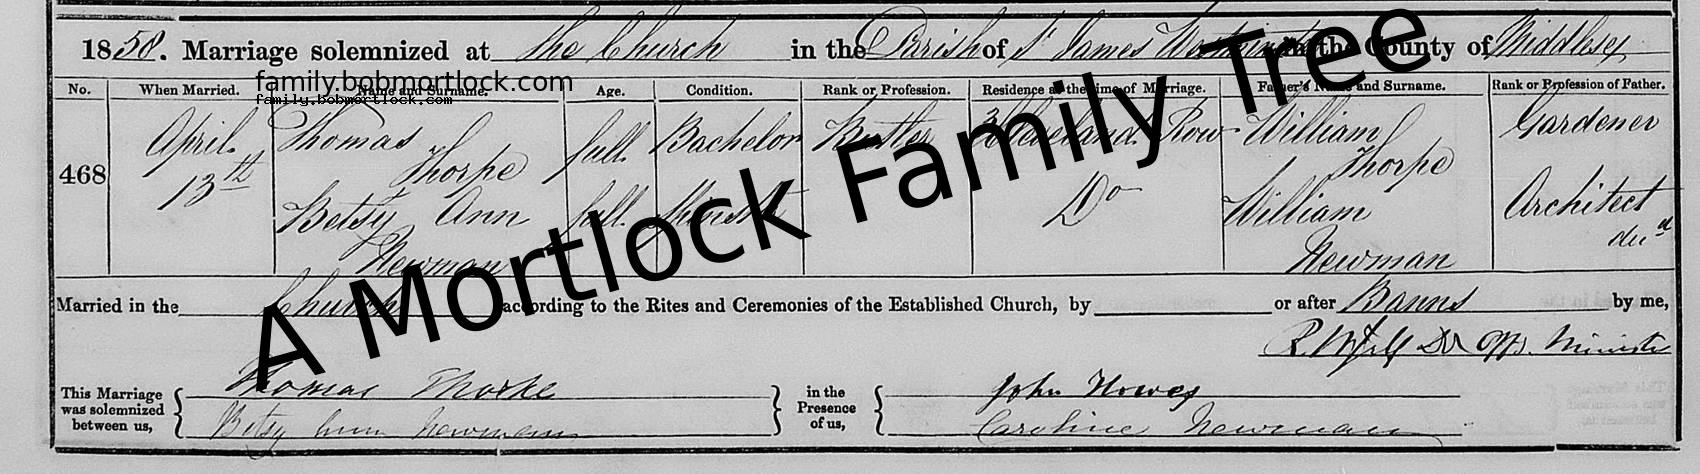 1858. Marriage solemnized at the Church in the Parish of St James Westminster in the County of Middlesex
family.bobmortlock.com
family.bobmortlock.com
No. When Married. Name and Surname. Age. Condition. Rank or Profession. Residence at the time of Marriage. Father's Name and Surname. Rank or Profession of Father.
468 April 13th Thomas Thorpe full Bachelor Butler 3 Cleveland Row William Thorpe Gardener
Betsy Ann Newman full Do William Newman Architect decd
A Mortlock Family Tree
Married in the Church according to the Rites and Ceremonies of the Established Church, by or after Banns by me,
Minister
This Marriage was solemnized between us, { Thomas Thorpe } in the Presence of us, { John Howes
Betsy Ann Newman Caroline Newman